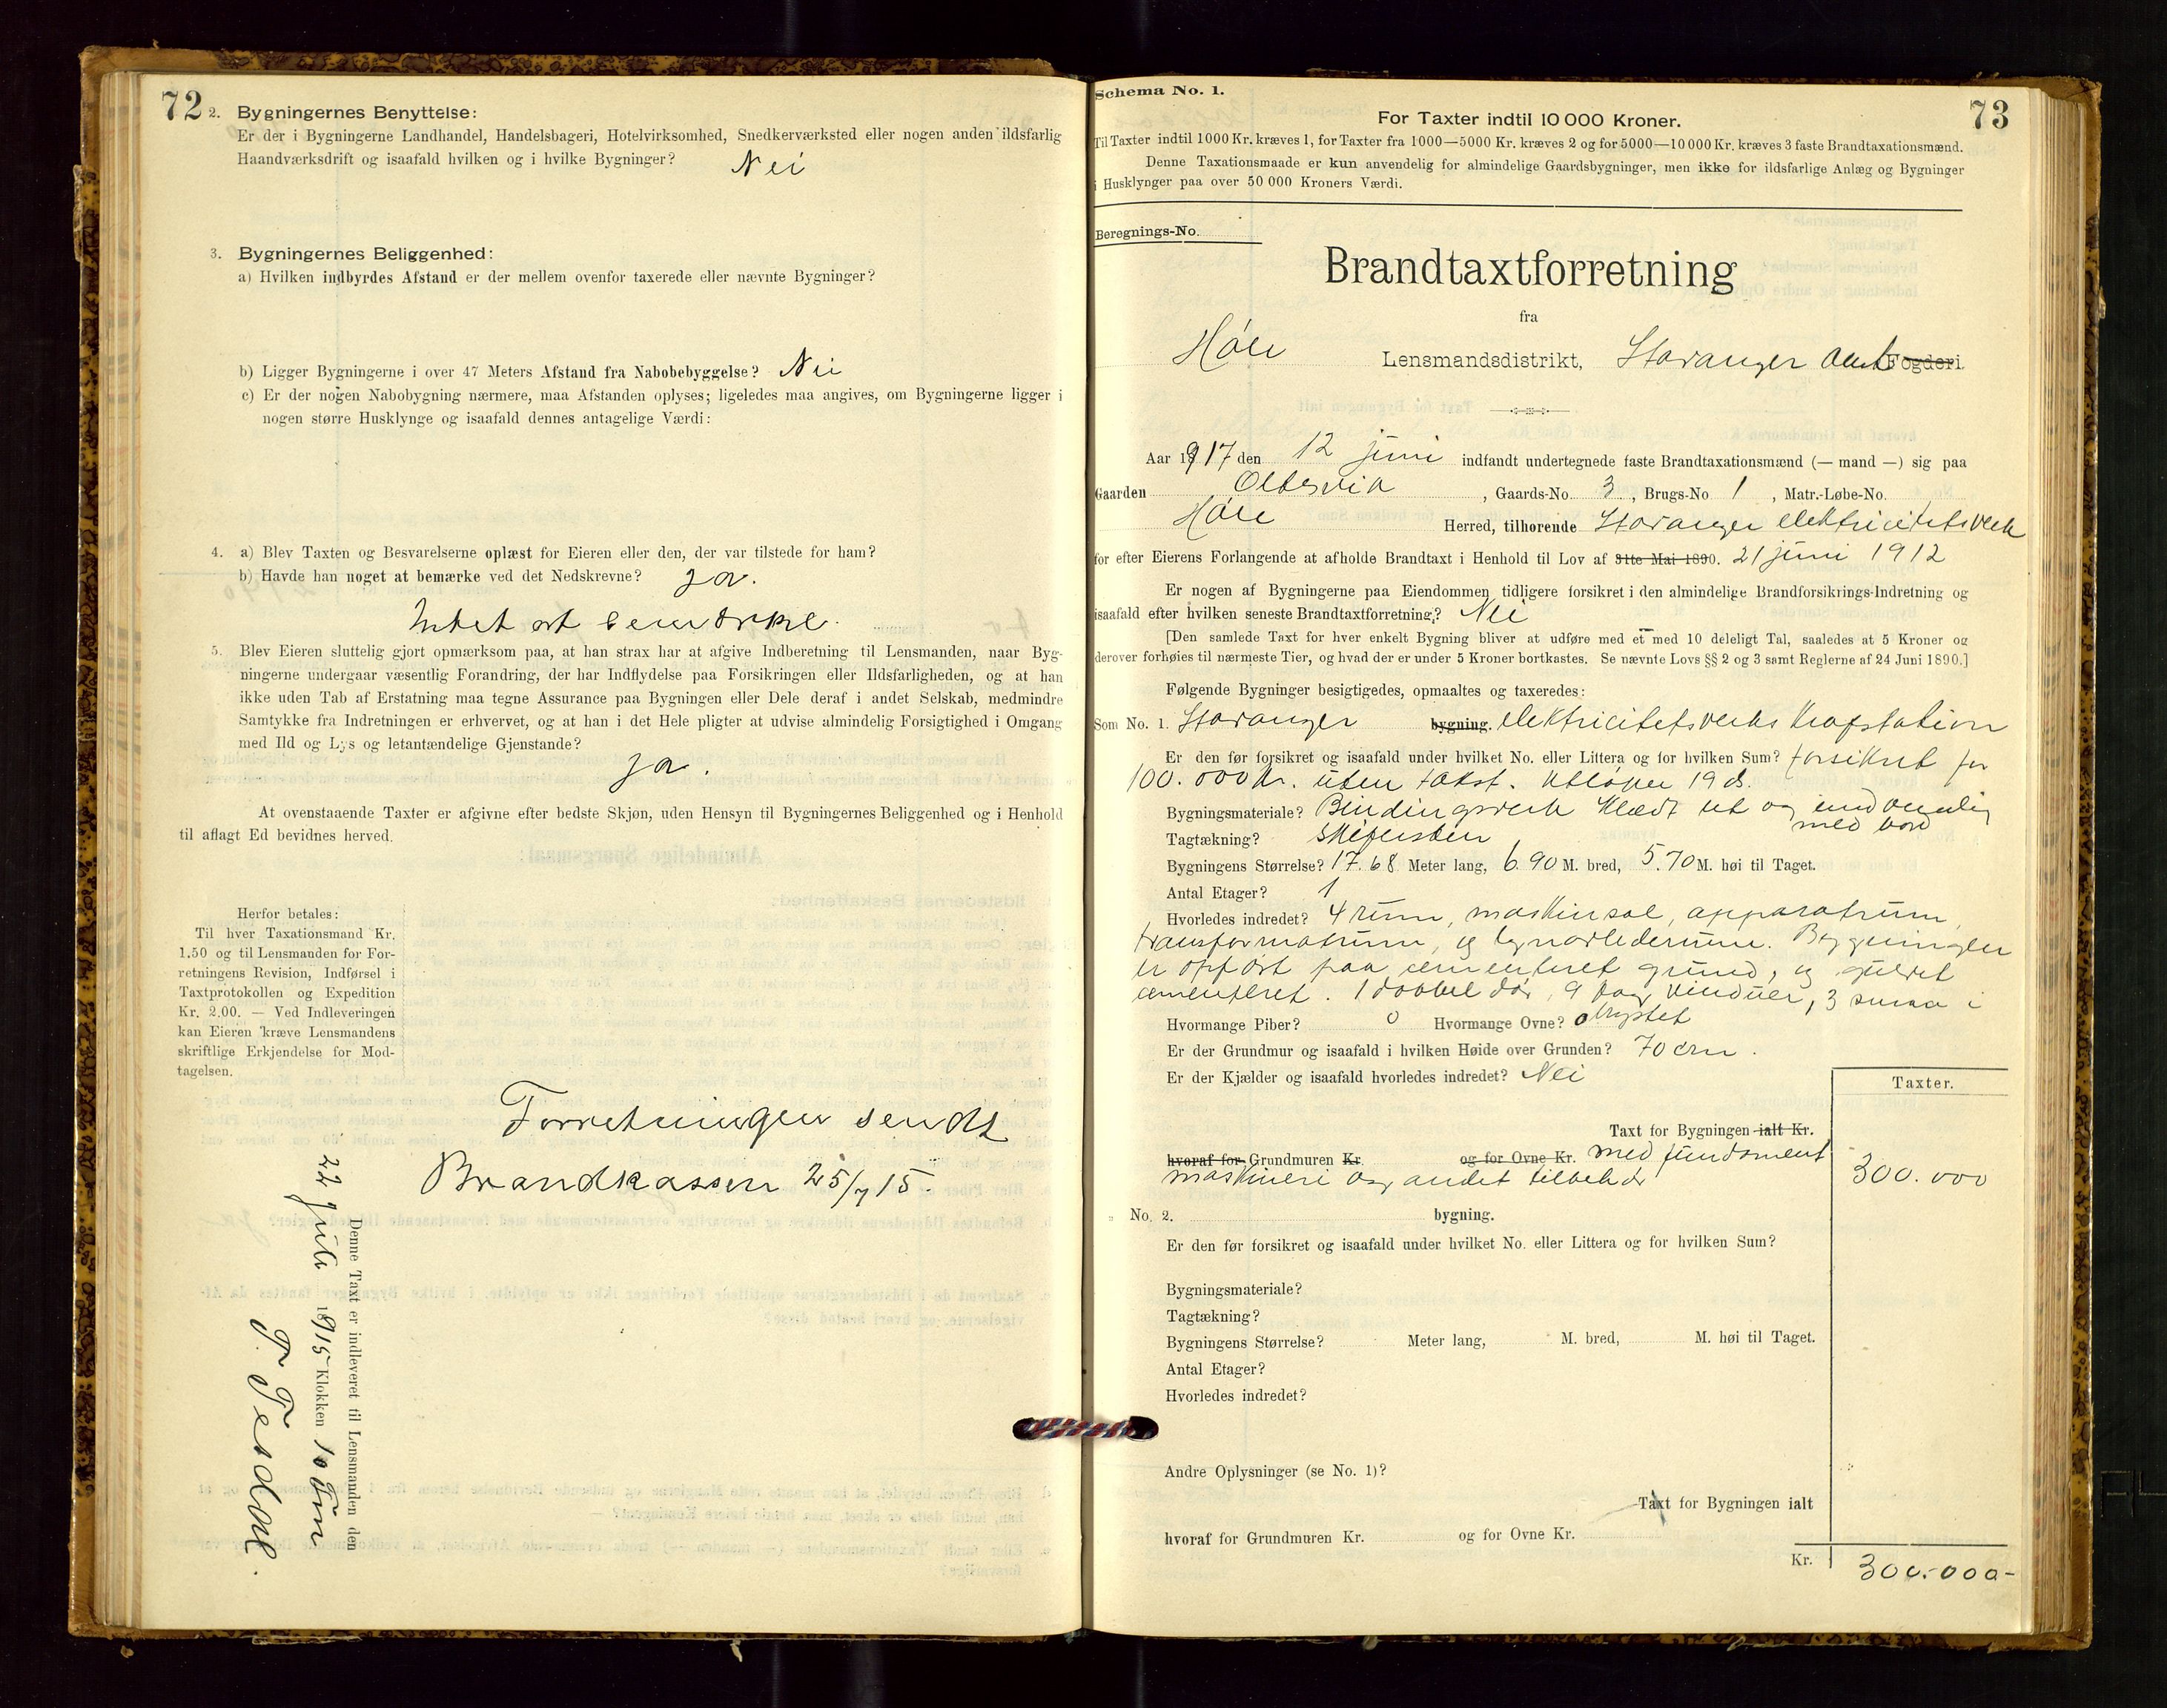 72
2. Bygningernes Benyttelse:
Er der i Bygningerne Landhandel, Handelsbageri, Hotelvirksomhed, Snedkerværksted eller nogen anden ildsfarlig
Haandværksdrift og isaafald hvilken og i hvilke Bygninger? Nei
3. Bygningernes Beliggenhed:
a) Hvilken indbyrdes Afstand er der mellem ovenfor taxerede eller nævnte Bygninger?
b) Ligger Bygningerne i over 47 Meters Afstand fra Nabobebyggelse? Nei
c) Er der nogen Nabobygning nærmere, maa Afstanden oplyses; ligeledes maa angives, om Bygningerne ligger i
nogen større Husklynge og isaafald dennes antagelige Værdi:
4. a) Blev Taxten og Besvarelserne oplæst for Eieren eller den, der var tilstede for ham?
b) Havde han noget at bemærke ved det Nedskrevne? ja.
Intet at bemærke.
5. Blev Eieren sluttelig gjort opmærksom paa, at han strax har at afgive Indberetning til Lensmanden, naar Byg-
ningerne undergaar væsentlig Forandring, der har Indflydelse paa Forsikringen eller Ildsfarligheden, og at han
ikke uden Tab af Erstatning maa tegne Assurance paa Bygningen eller Dele deraf i andet Selskab, medmindre
Samtykke fra Indretningen er erhvervet, og at han i det Hele pligter at udvise almindelig Forsigtighed i Omgang
med Ild og Lys og letantændelige Gjenstande?
ja.
At ovenstaaende Taxter er afgivne efter bedste Skjøn, uden Hensyn til Bygningernes Beliggenhed og i Henhold
til aflagt Ed bevidnes herved.
Herfor betales:
Til hver Taxationsmand Kr.
1.50 og til Lensmanden for For-
retningens Revision, Indførsel i
Taxtprotokollen og Expedition
Kr. 2.00. — Ved Indleveringen
kan Eieren kræve Lensmandens
skriftlige Erkjendelse for Mod-
tagelsen.
Forretningen sendt
Brandkassen 25/7 15.
Denne Taxt er indleveret til Lensmanden den
22 juli 1915 Klokken 10 fm
T. Tesdal.
73
Schema No. 1.
For Taxter indtil 10 000 Kroner.
Til Taxter indtil 1000 Kr. kræves 1, for Taxter fra 1000—5000 Kr. kræves 2 og for 5000—10 000 Kr. kræves 3 faste Brandtaxationsmænd.
Denne Taxationsmaade er kun anvendelig for almindelige Gaardsbygninger, men ikke for ildsfarlige Anlæg og Bygninger
i Husklynger paa over 50 000 Kroners Værdi.
Beregnings-No.
Brandtaxtforretning
fra
Høle Lensmandsdistrikt, Stavanger amt Fogderi.
Aar 1917 den 12 juni indfandt undertegnede faste Brandtaxationsmænd (— mand —) sig paa
Gaarden Oltesvik, Gaards-No. 3, Brugs-No 1, Matr.-Løbe-No.
Høle Herred, tilhørende Stavanger elektricitetsverk
for efter Eierens Forlangende at afholde Brandtaxt i Henhold til Lov af 31te Mai 1890. 21 juni 1912
Er nogen af Bygningerne paa Eiendommen tidligere forsikret i den almindelige Brandforsikrings-Indretning og
isaafald efter hvilken seneste Brandtaxtforretning? Nei
[Den samlede Taxt for hver enkelt Bygning bliver at udføre med et med 10 deleligt Tal, saaledes at 5 Kroner og
derover forhøies til nærmeste Tier, og hvad der er under 5 Kroner bortkastes. Se nævnte Lovs §§ 2 og 3 samt Reglerne af 24 Juni 1890.]
Følgende Bygninger besigtigedes, opmaaltes og taxeredes:
Som No. 1. Stavanger bygning. elektricitetsverks krafstation
Er den før forsikret og isaafald under hvilket No. eller Littera og for hvilken Sum? forsikret for
100.000 kr. uten takst. utløper
Bygningsmateriale? Bindingsverk klædt ut og indvendig
med bord
Tagtækning? skifersten
Bygningens Størrelse? 17.68 Meter lang, 6.90 M. bred, 5.70 M. høi til Taget.
Antal Etager? 1
Hvorledes indredet? 4 rum, maskinsal, apparatrum,
transformatrum, og lynavlederum. Bygningen
er opført paa cementeret grund, og gulvet
cementeret. 1 dobbel dør, 9 fag vinduer, 3 smaa i
Hvormange Piber? 0 Hvormange Ovne? 0 brystet
Er der Grundmur og isaafald i hvilken Høide over Grunden? 70 cm.
Er der Kjælder og isaafald hvorledes indredet? Nei
Taxter.
Taxt for Bygningen ialt Kr.
hvoraf for Grundmuren Kr. og for Ovne Kr. med fundament
maskineri og andet tilbehør 300.000
No. 2. bygning.
Er den før forsikret og isaafald under hvilket No. eller Littera og for hvilken Sum?
Bygningsmateriale?
Tagtækning?
Bygningens Størrelse? Meter lang, M. bred, M. høi til Taget.
Antal Etager?
Hvorledes indredet?
Andre Oplysninger (se No. 1)?
Taxt for Bygningen ialt
hvoraf for Grundmuren Kr. og for Ovne Kr.
Kr. 300.000-